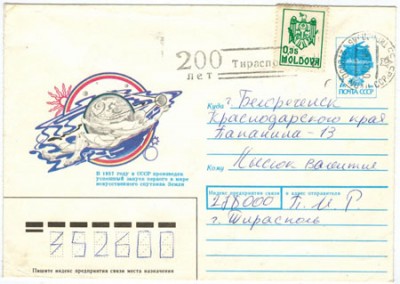 200 лет Тираспо
0,05
MOLDOVA
ПОЧТА СССР
Куда г. Белореченск
Краснодарского края
Папанина-13
Кому
В 1957 году в СССР произведен
успешный запуск первого в мире
искусственного спутника Земли
Индекс предприятия связи и адрес отправителя
278000 П. М. Р
г. Тирасполь
352600
Пишите индекс предприятия связи места назначения